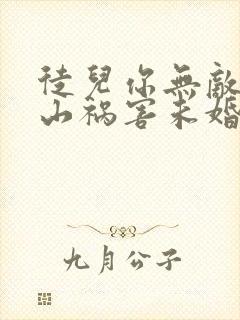 徒兒你無敵
山禍害未婚
九月公子